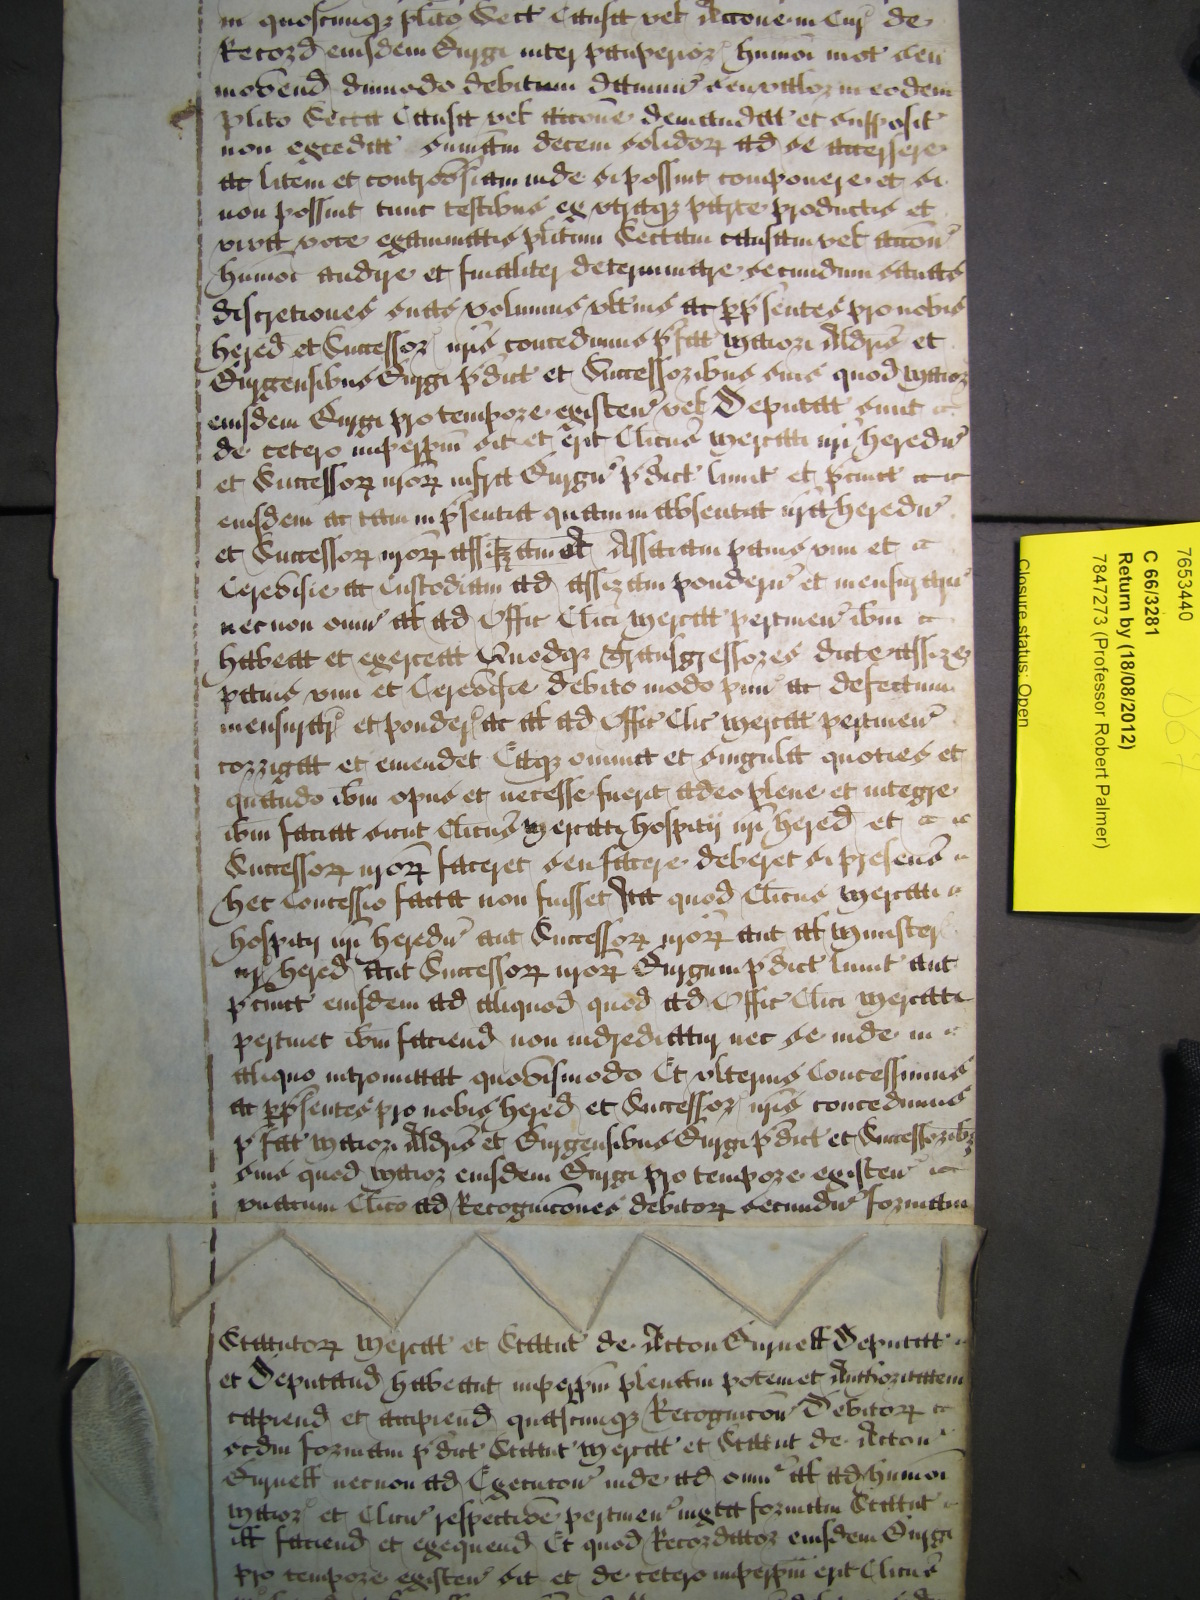 in quoscunq; plito Sect Causa vel Accone in Cur de
Record eiusdem Burgi inter pauperior humoi mot seu
movend dumodo debitum dampnu seu valor in eodem
plito Secta Causa vel accone demandat et supposit
non excedat summam decem solidor ad se accersere
ac litem et controversiam inde si possint componere et si
non possint tunc testibus ex utraq; parte productis et
viva voce examinatis plitum Sectam causam vel accon
humoi audire et finaliter determinare secundum sanas
discretiones suas volumus ulterius ac p psentes pro nobis
hered et Successor nris concedimus pfat Maiori Aldris et
Burgensibus Burgi pdict et Successoribus suis quod Maior
eiusdem Burgi pro tempore existen vel Deputat suus
de cetero imperpm sit et erit Clicus Mercati nri heredu
et Successor nror infra Burgu pdict limit et pcinct
eiusdem ac tam in psentia quam in absentia nra heredu
et Successor nror Assaiam panis vini et
Cerevisie ac Custodiam ad assizam ponderu et mensurarum
necnon omn al ad Offic Clici Mercat pertinen ibm
habeat et exerceat Quodq; Transgressores dicte assize
panis vini et Cerevisie debito modo puni ac defectum
mensurar et ponder ac al ad Offic Clic Mercat pertinen
corrigat et emendet Eaq; omnia et singula quoties et
quando ibm opus et necesse fuerit adeo plene et integre
ibm faciat sicut Clicus Mercati hospitij nri hered et
Successor nror faceret seu facere deberet si presens
hec Concessio facta non fuisset Ita quod Clicus Mercati
hospitij nri heredu aut Successor nror aut al Minister
nri hered Aut Successor nror Burgum pdict limit aut
pcinct eiusdem ad aliquod quod ad Offic Clici Mercati
pertinet ibm faciend non ingrediatur nec se inde in
aliquo intromittat quovismodo Et ulterius Concessimus
ac p psentes pro nobis hered et Successor nris concedimus
pfat Maiori Aldris et Burgensibus Burgi pdict et Successorib;
suis quod Maior eiusdem Burgi pro tempore existen
unacum Clico ad Recogniciones debitor secundu formam
Statutor Mercat et Statut de Acton Burnell Deputat
et Deputand habeant imperpm plenam potem et Authoritatem
capiend et accipiend quascunq; Recognicon Debitor
scdm formam pdict Statut Mercat et Statut de Acton
Burnell necnon ad Execucon inde ad omn al ad humoi
Maior et Clicu respective pertinen iuxta formam Statut
ill faciend et exequend Et quod Recordator eiusdem Burgi
pro tempore existen sit et de cetero imperpm erit Clicus
7653440
C 66/3281
Return by (18/08/2012)
7847273 (Professor Robert Palmer)
Closure status: Open